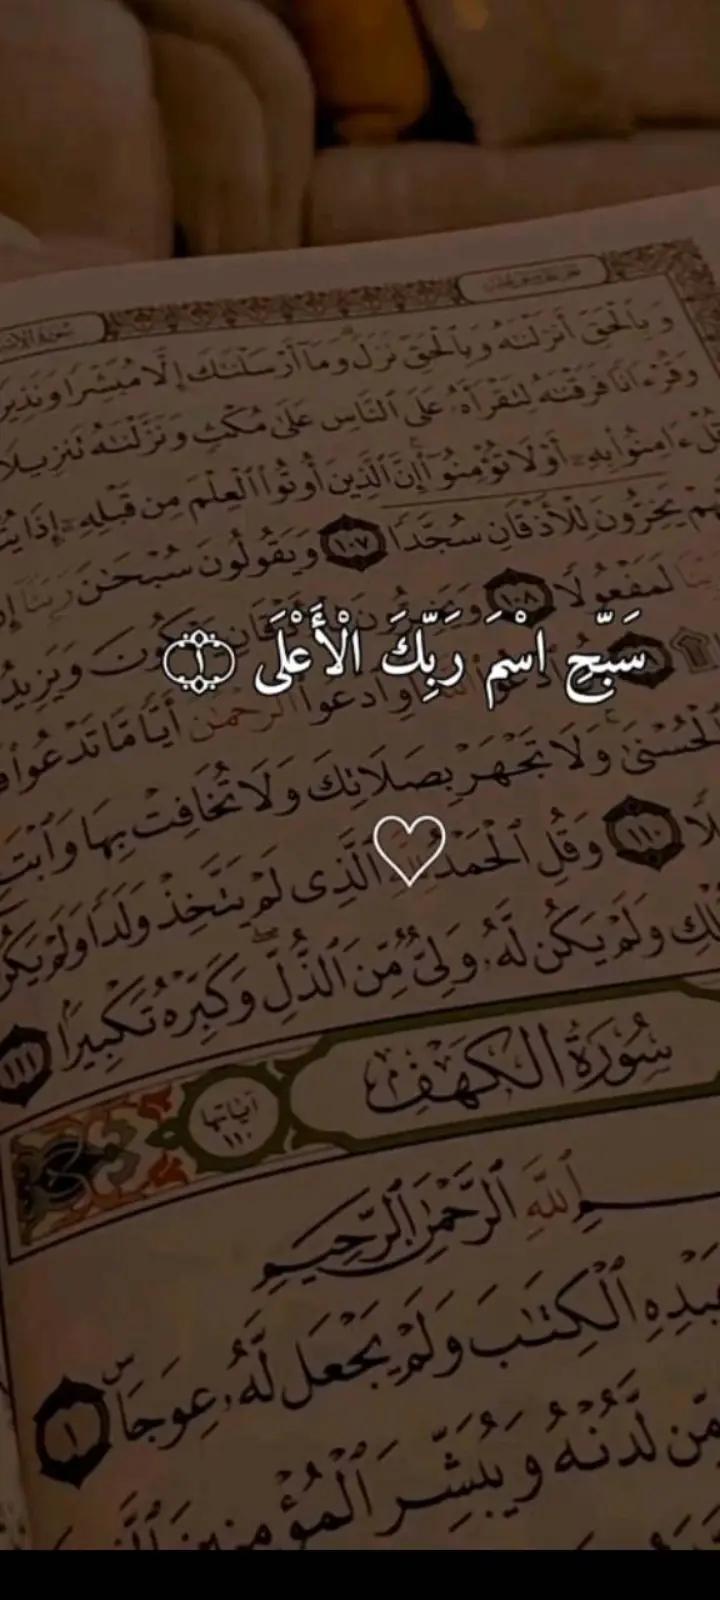 وَبِٱلْحَقِّ أَنزَلْنَٰهُ وَبِٱلْحَقِّ نَزَلَ وَمَآ أَرْسَلْنَٰكَ إِلَّا مُبَشِّرًا وَنَذِيرًا
وَقُرْءَانًا فَرَقْنَٰهُ لِتَقْرَأَهُۥ عَلَى ٱلنَّاسِ عَلَىٰ مُكْثٍ وَنَزَّلْنَٰهُ تَنزِيلًا
قُلْ ءَامِنُوا۟ بِهِۦٓ أَوْ لَا تُؤْمِنُوٓا۟ إِنَّ ٱلَّذِينَ أُوتُوا۟ ٱلْعِلْمَ مِن قَبْلِهِۦٓ إِذَا
يَخِرُّونَ لِلْأَذْقَانِ سُجَّدًا ١٠٧ وَيَقُولُونَ سُبْحَٰنَ رَبِّنَآ
لَمَفْعُولًا ١٠٨ وَيَخِرُّونَ لِلْأَذْقَانِ يَبْكُونَ وَيَزِيدُ
سَبِّحِ اسْمَ رَبِّكَ الْأَعْلَى ١
أَوِ ٱدْعُوا۟ ٱلرَّحْمَٰنَ أَيًّا مَّا تَدْعُوا۟
ٱلْحُسْنَىٰ وَلَا تَجْهَرْ بِصَلَاتِكَ وَلَا تُخَافِتْ بِهَا وَٱبْتَ
لًا ١١٠ وَقُلِ ٱلْحَمْدُ لِلَّهِ ٱلَّذِى لَمْ يَتَّخِذْ وَلَدًا وَلَمْ يَكُن
وَلَمْ يَكُن لَّهُۥ وَلِىٌّ مِّنَ ٱلذُّلِّ وَكَبِّرْهُ تَكْبِيرًۢا ١١١
سُورَةُ الكَهْفِ
آيَاتُهَا ١١٠
بِسْمِ ٱللَّهِ ٱلرَّحْمَٰنِ ٱلرَّحِيمِ
عَبْدِهِ ٱلْكِتَٰبَ وَلَمْ يَجْعَل لَّهُۥ عِوَجَاۜ ١
مِّن لَّدُنْهُ وَيُبَشِّرَ ٱلْمُؤْمِنِينَ